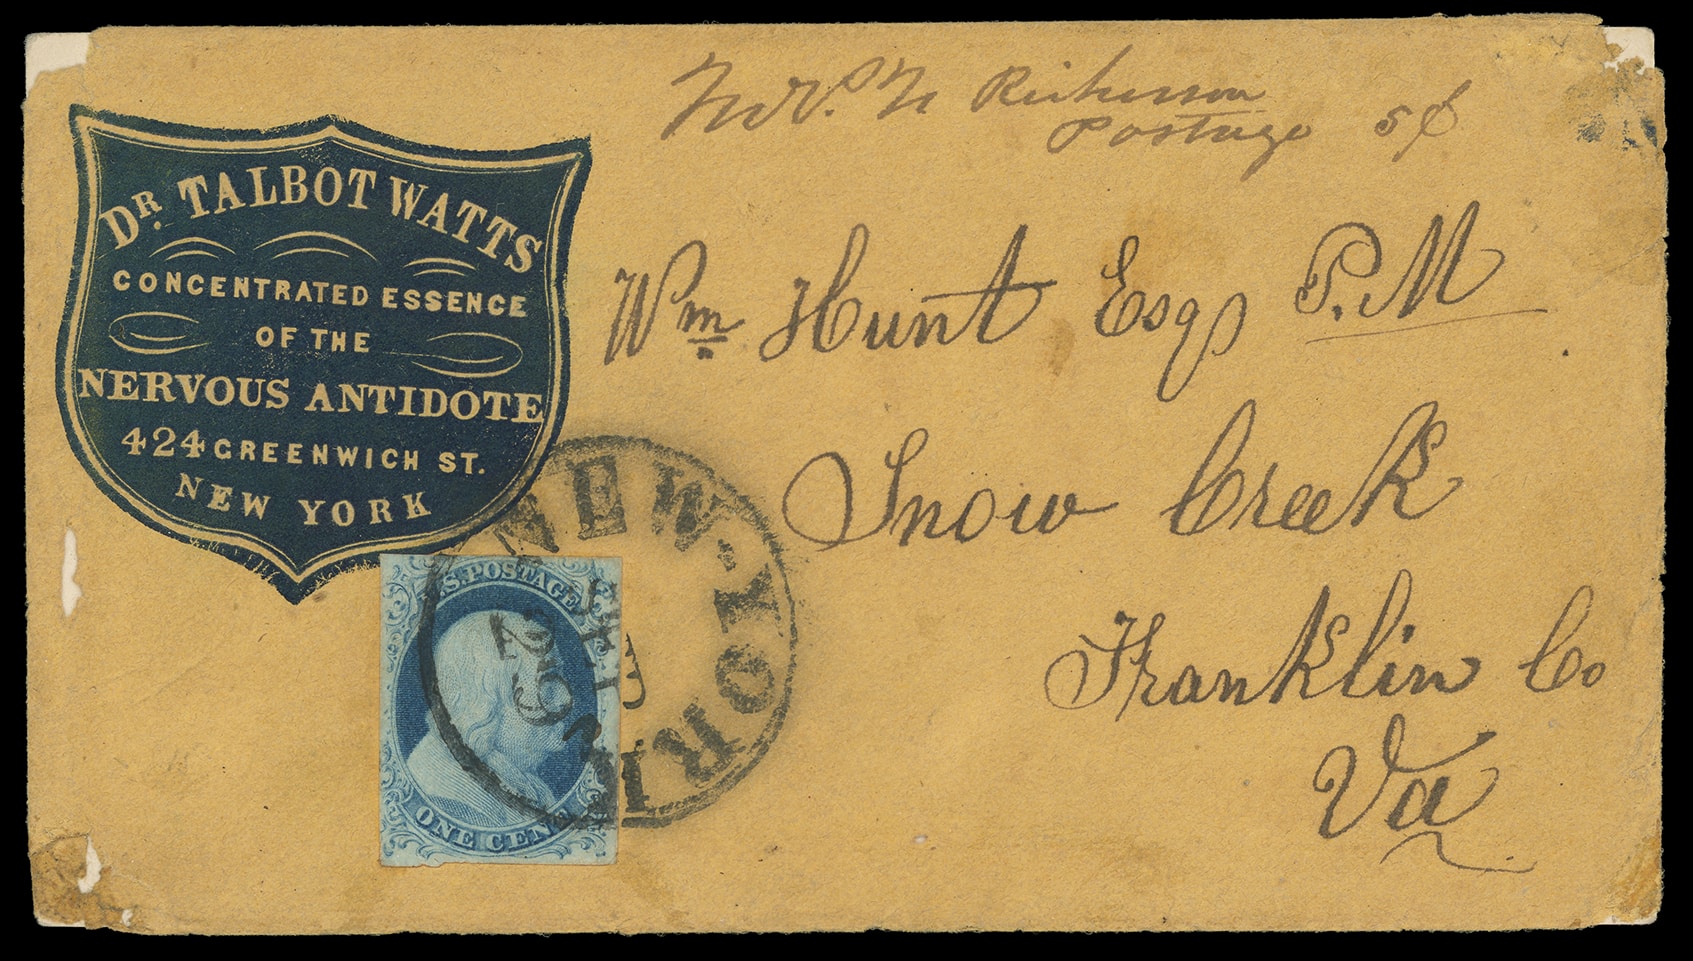 Postage 5¢
DR. TALBOT WATTS
CONCENTRATED ESSENCE
OF THE
NERVOUS ANTIDOTE
424 GREENWICH ST.
NEW YORK
Wm Hunt Esq P.M
Snow Creek
Franklin Co
Va
NEW-YORK
29
U.S. POSTAGE
ONE CENT